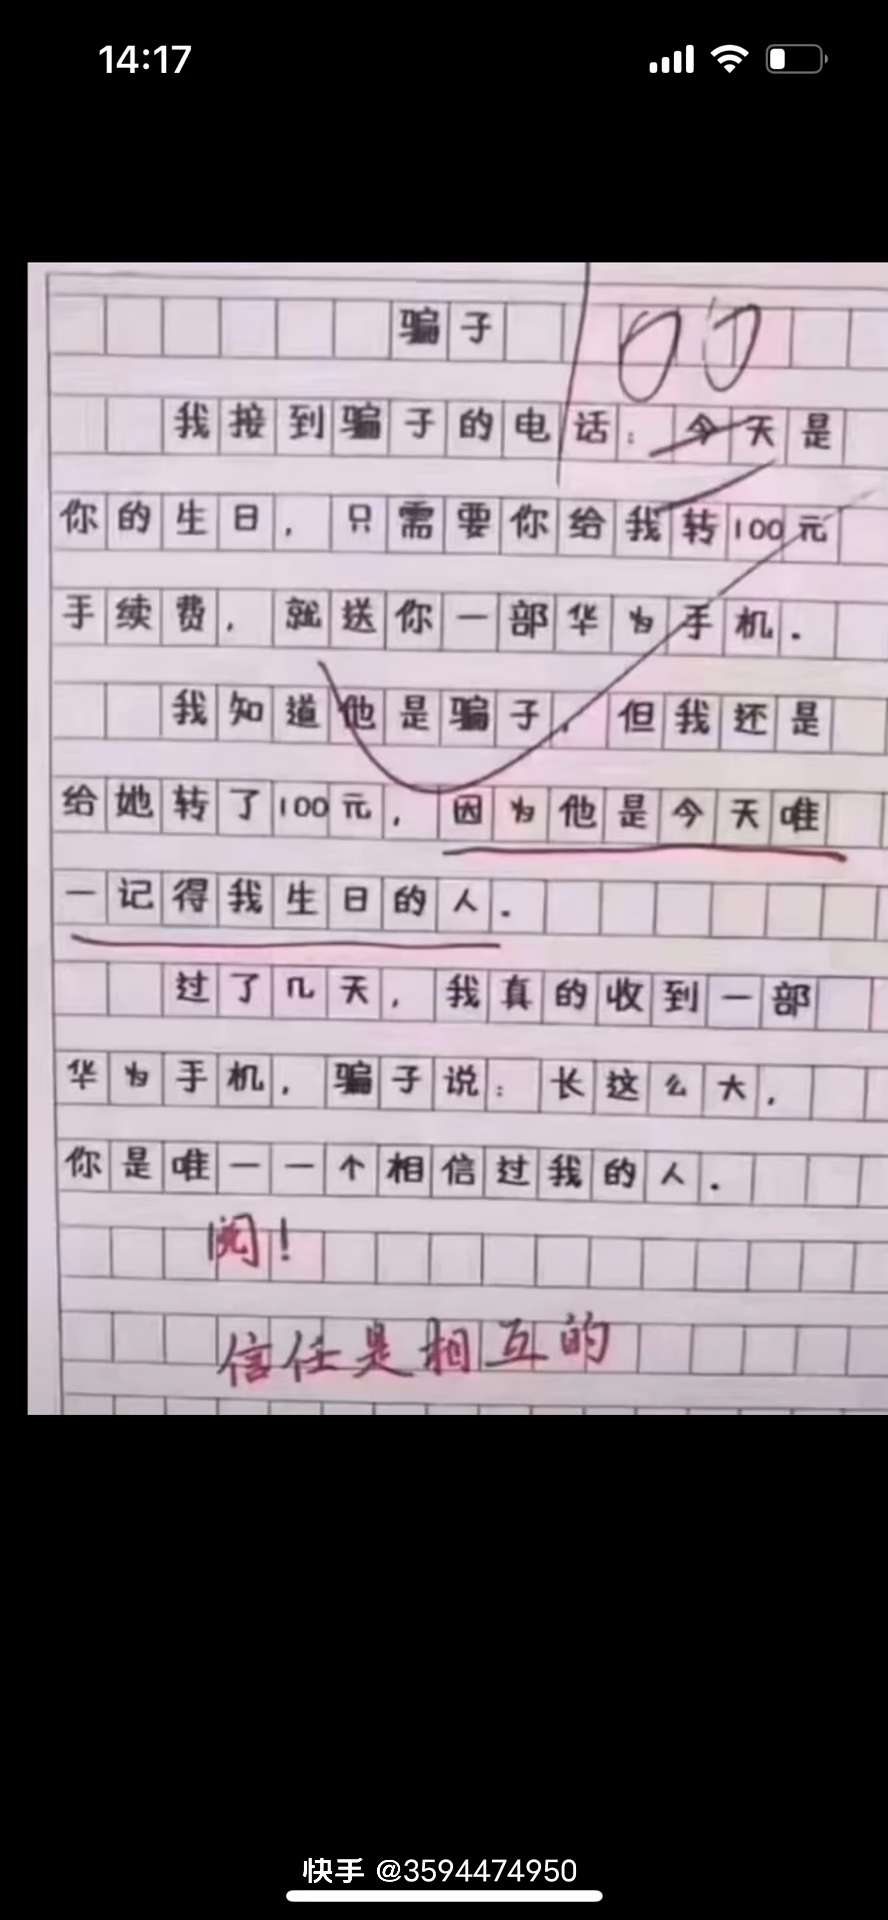 14:17
骗子
100
我接到骗子的电话：今天是
你的生日，只需要你给我转100元
手续费，就送你一部华为手机.
我知道他是骗子，但我还是
给她转了100元，因为他是今天唯
一记得我生日的人.
过了几天，我真的收到一部
华为手机，骗子说：长这么大，
你是唯一一个相信过我的人.
阅！
信任是相互的
快手 @3594474950